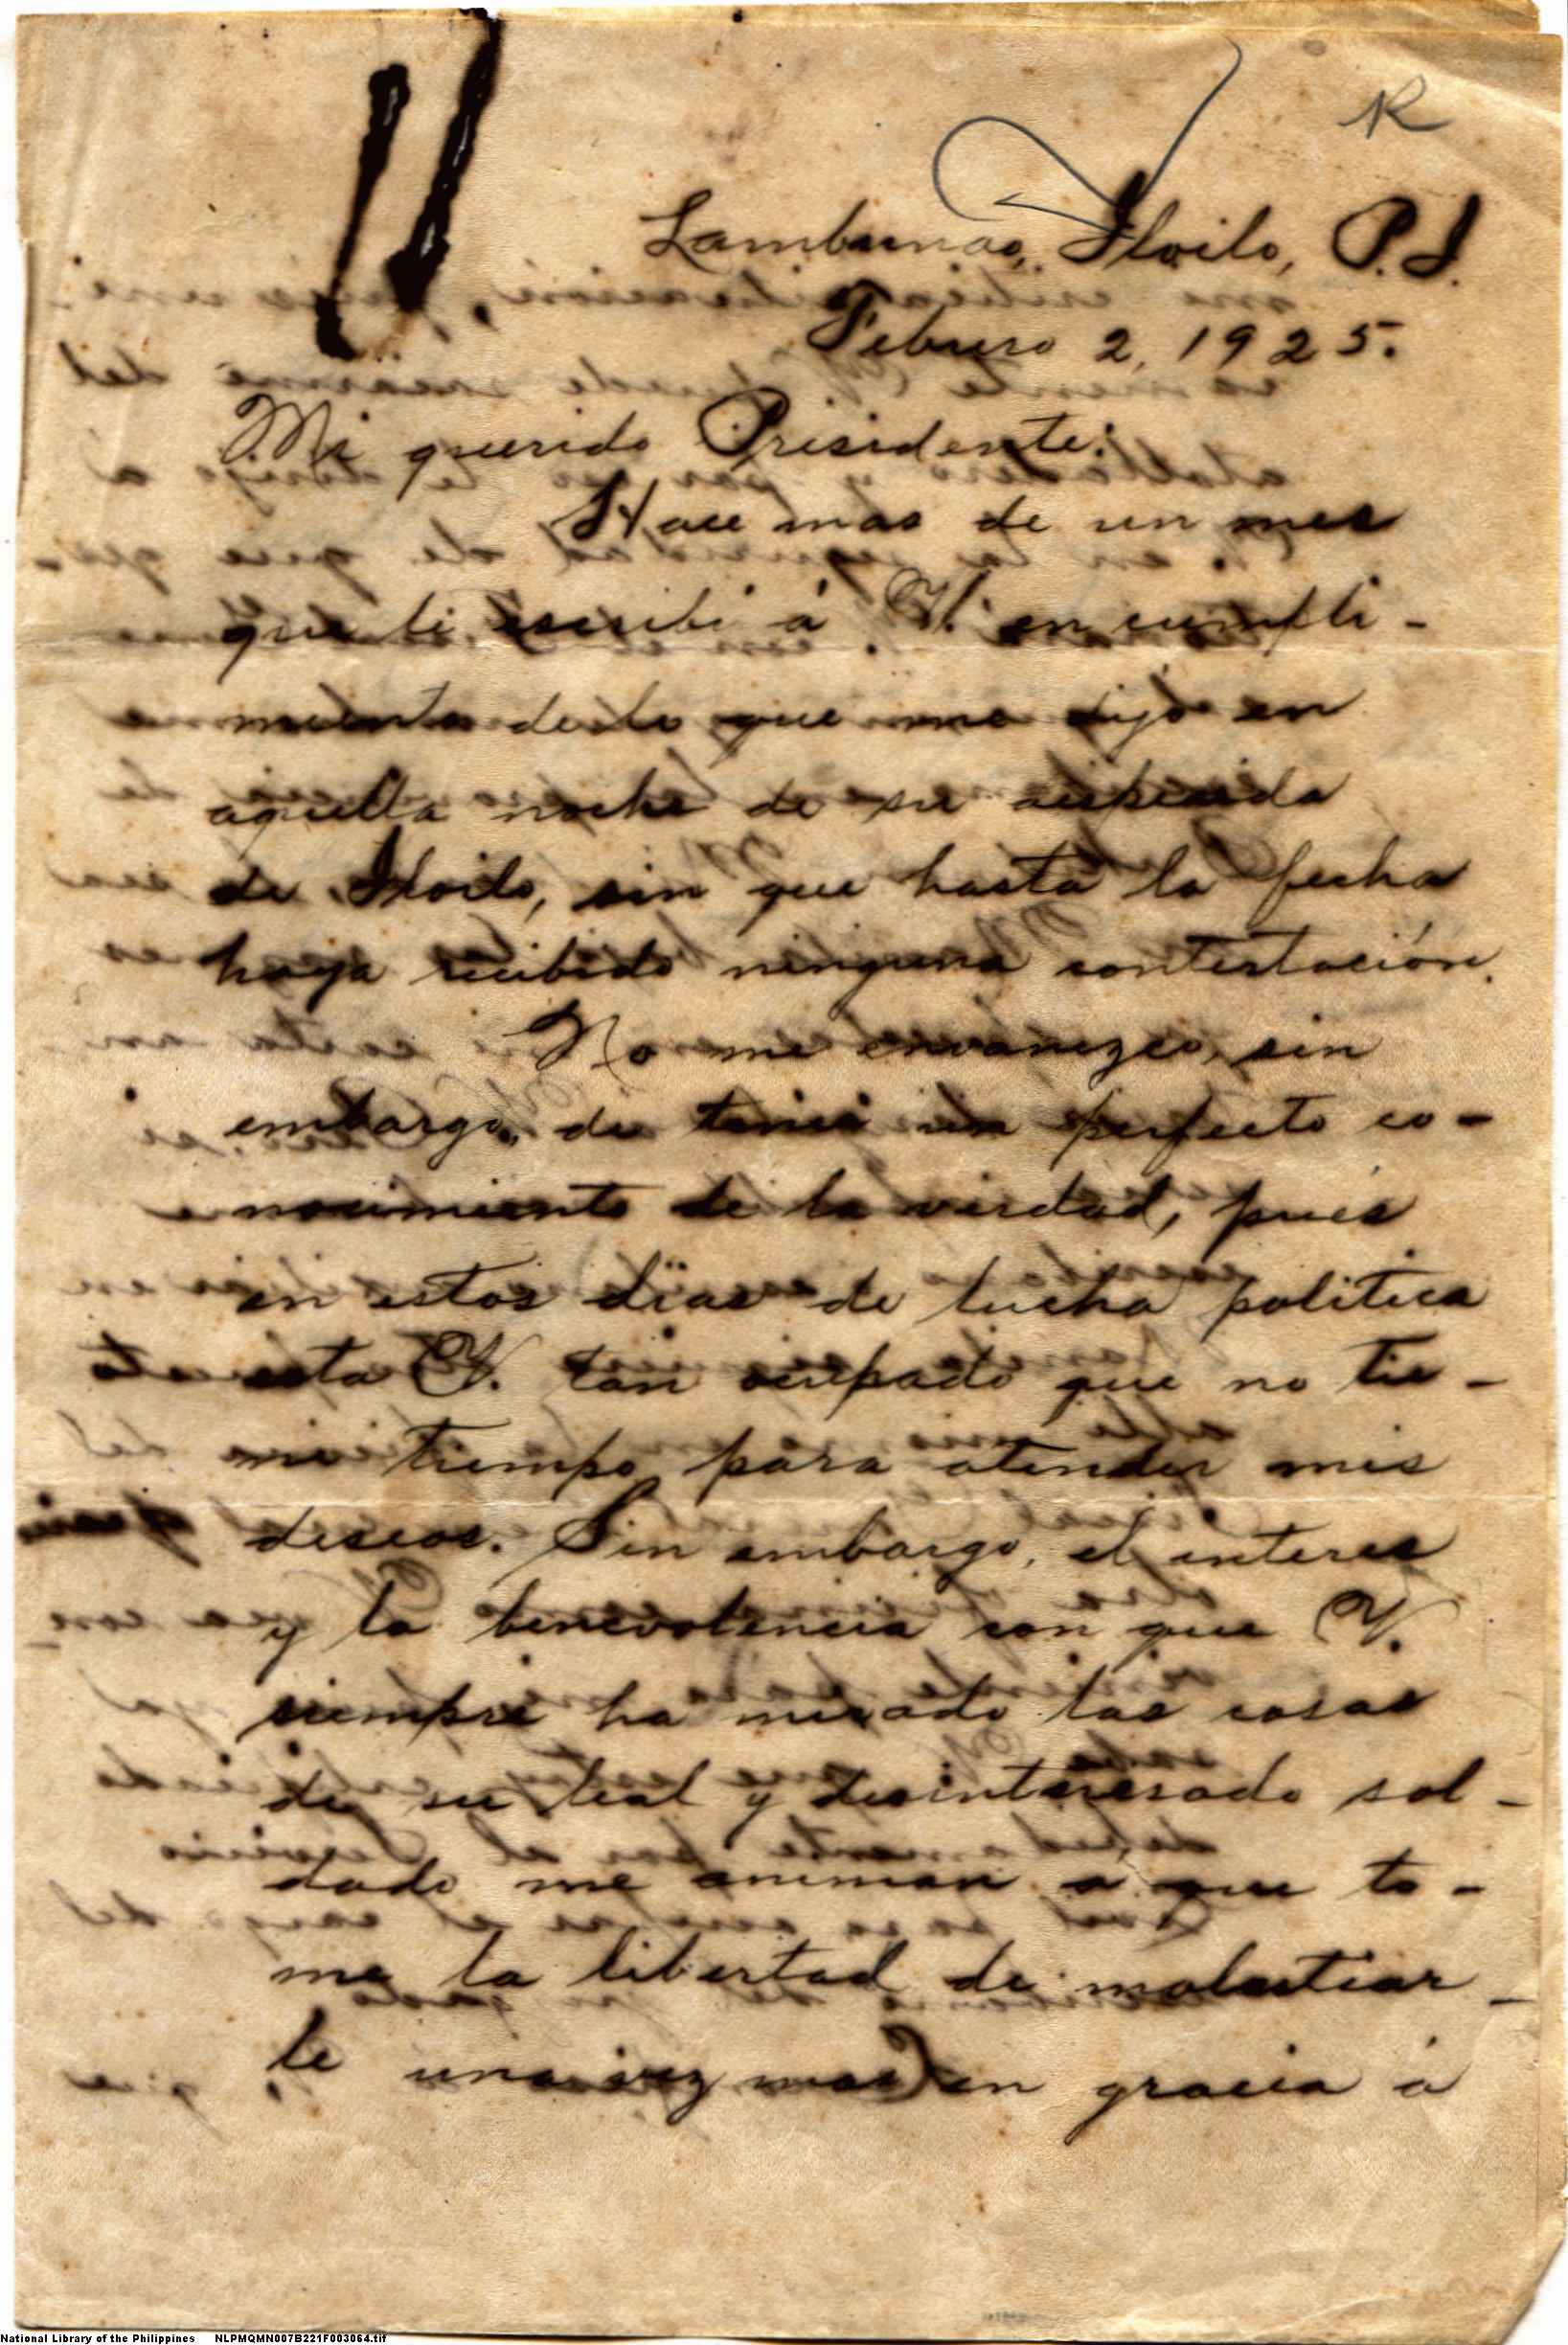 R
Lambunao, Iloilo, P.I.
Febrero 2, 1925.
Mi querido Presidente:
Hace mas de un mes
que le escribi á V. en cumpli-
miento de lo que me dijo en
aquella noche de su despedida
de Iloilo, sin que hasta la fecha
haya recibido ninguna contestación.
No me envanezco, sin
embargo, de tener un perfecto co-
nocimiento de la verdad, pues
en estos dias de lucha politica
esta V. tan ocupado que no tie-
ne tiempo para atender mis
deseos. Sin embargo, el interes
y la benevolencia con que V.
siempre ha mirado las cosas
de su leal y desinteresado sol-
dado me animan a que to-
me la libertad de molestiar-
le una vez mas en gracia á
National Library of the Philippines NLPMQMN007B221F003064.tif